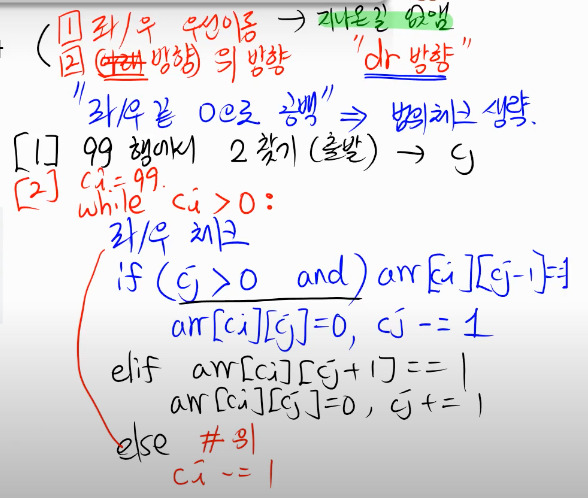 ( 1 좌/우 우선이동 → 지나온길 없앰
2 (아래 방향) 위 방향 "dr 방향"
"좌/우 끝 0으로 공백" ⇒ 범위체크 생략.
[1] 99 행에서 2 찾기 (출발) → cj
[2] ci = 99.
while ci > 0:
좌/우 체크
if (cj > 0 and) arr[ci][cj-1]==1
arr[ci][cj]=0, cj -= 1
elif arr[ci][cj+1] == 1
arr[ci][cj]=0, cj += 1
else #위
ci -= 1